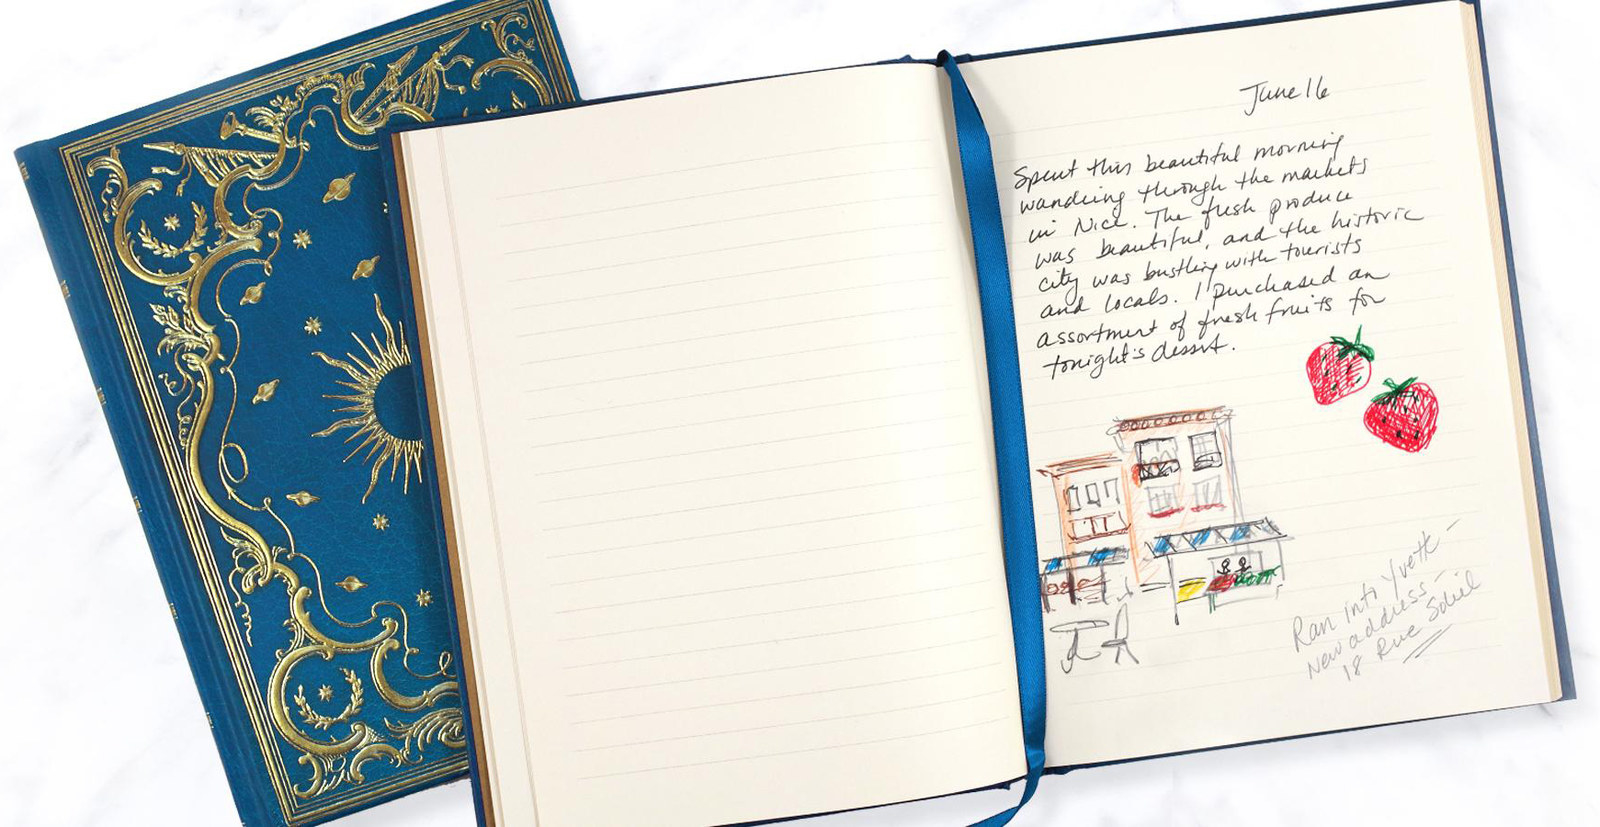 June 16
Spent this beautiful morning
wandering through the markets
in Nice. The fresh produce
was beautiful, and the historic
city was bustling with tourists
and locals. I purchased an
assortment of fresh fruits for
tonight's dessert.
Ran into Yvett –
New address –
18 Rue